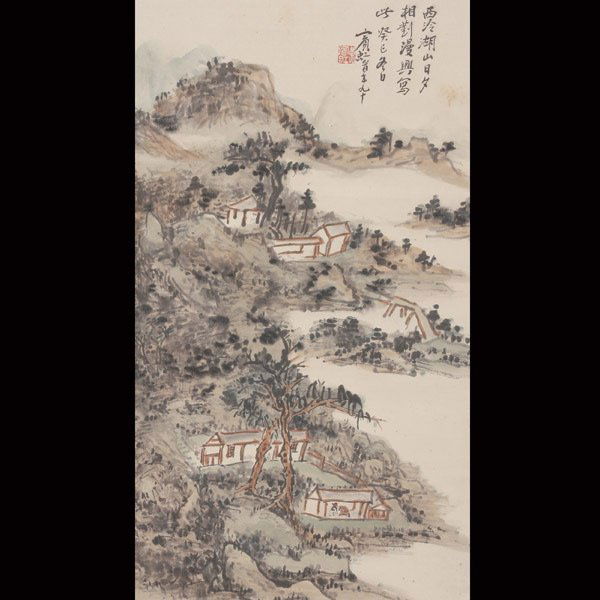 西泠湖山日夕
相對漫興寫
此癸巳冬日
賓虹年九十